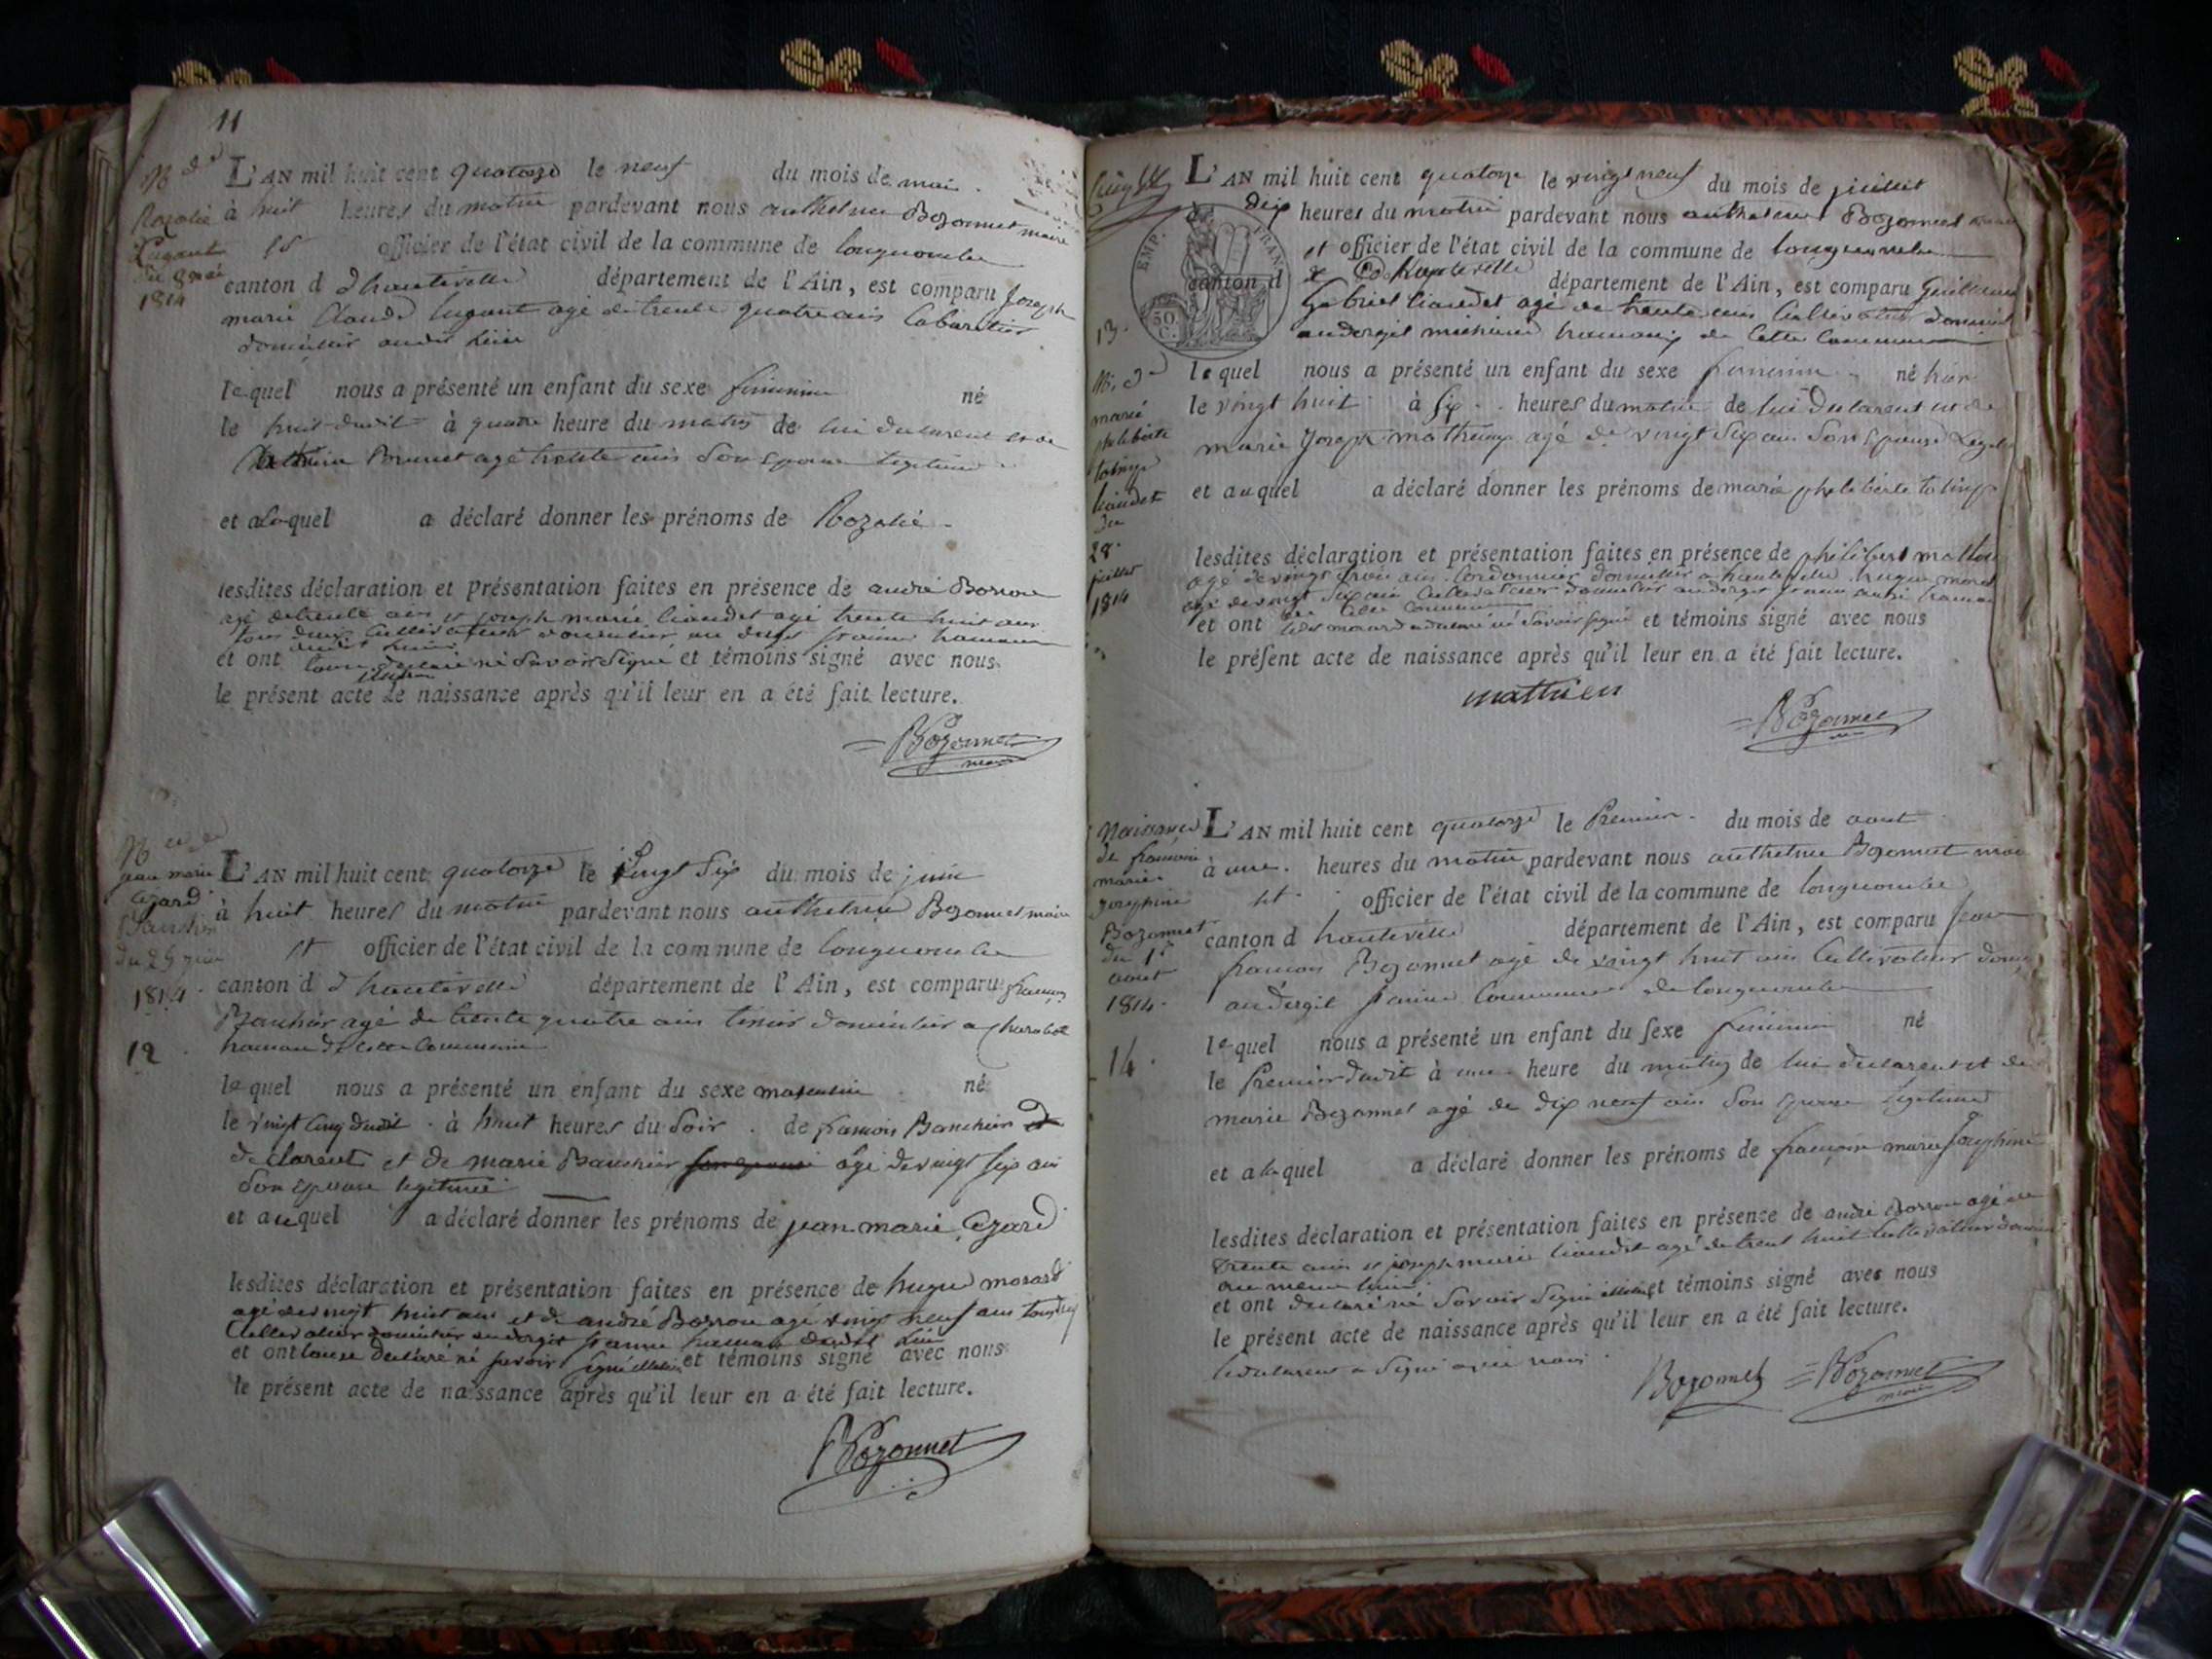 11
N de
Rozalie
Lugant
du 8 mai
1814
L'AN mil huit cent quatorze le neuf du mois de mai
à huit heures du matin pardevant nous anthelme Bozonnet maire
et officier de l'état civil de la commune de longecombe
canton d d'hauteville département de l'Ain, est comparu Joseph
marie Claude lugant agé de trente quatre ans Cabaretier
domicilié audit lieu
lequel nous a présenté un enfant du sexe feminin né
le huit dudit à quatre heure du matin de lui declarent et de
Brunet agé trente ans Son epouse legitime
et alaquel a déclaré donner les prénoms de Rozalie
lesdites déclaration et présentation faites en présence de andré Borron
agé de trente ans et joseph marie liaudet agé trente huit ans
tous deux Cultivateur domicilier
et ont declaré ne Savoir Signé et témoins signé avec nous
le présent acte de naissance après qu'il leur en a été fait lecture.
Bozonnet
maire
N ce de
jean marie
Cezard
Banchin
du 25 juin
1814
12
L'AN mil huit cent quatorze le vingt Six du mois de juin
à huit heures du matin pardevant nous anthelme Bozonnet maire
et officier de l'état civil de la commune de longecombe
canton d d'hauteville département de l'Ain, est comparu françois
Banchin agé de trente quatre ans domicilier a
hamau de cette Commune
lequel nous a présenté un enfant du sexe masculin né
le vingt Cinq dudit à huit heures du Soir de francois Banchin
declarent et de marie Banchin agé de vingt Six ans
Son epouse legitime
et auquel a déclaré donner les prénoms de jean marie Cezard
lesdites déclaration et présentation faites en présence de hugue morard
agé de vingt huit ans et de andré Borron agé vingt neuf ans tous deux
Cultivateur domicilier
et ont tous declaré ne savoir signé et témoins signé avec nous
le présent acte de naissance après qu'il leur en a été fait lecture.
Bozonnet
13
N. de
marie
pheliberte
liaudet
du
28
juillet
1814
L'AN mil huit cent quatorze le vingt neuf du mois de juillet
dix heures du matin pardevant nous anthelme Bozonnet maire
et officier de l'état civil de la commune de longecombe
canton d hauteville département de l'Ain, est comparu Guillaume
Gabriel liaudet agé de trente ans Cultivateur domicilié
de Cette Commune
EMP. FRAN.
50
C.
lequel nous a présenté un enfant du sexe feminin né hier
le vingt huit à Six heures du matin de lui declarent et de
marie Joseph agé de vingt Six ans Son epouse Legitime
et auquel a déclaré donner les prénoms de marie pheliberte
lesdites déclaration et présentation faites en présence de philibert
agé de vingt trois ans Cordonnier domicilier a hauteville hugue morard
agé de vingt Six ans Cultivateur domicilier
et ont ledit morard a declaré ne Savoir signé et témoins signé avec nous
le présent acte de naissance après qu'il leur en a été fait lecture.
mathieu
Bozonnet
Naissance
de francoise
marie
josephine
Bozonnet
du 1er
aout
1814
14
L'AN mil huit cent quatorze le Premier du mois de aout
à une heures du matin pardevant nous anthelme Bozonnet maire
et officier de l'état civil de la commune de longecombe
canton d hauteville département de l'Ain, est comparu jean
francois Bozonnet agé de vingt huit ans Cultivateur
Commune de longecombe
lequel nous a présenté un enfant du sexe feminin né
le Premier dudit à une heure du matin de lui declarent et de
marie Bozonnet agé de dix neuf ans Son epouse legitime
et alaquel a déclaré donner les prénoms de françoise marie Josephine
lesdites déclaration et présentation faites en présence de andré Borron agé de
trente ans et joseph marie liaudet agé de trent huit Cultivateur
au meme lieu
et ont declaré ne Savoir Signé et témoins signé avec nous
le présent acte de naissance après qu'il leur en a été fait lecture.
le declarent a Signé avec nous
Bozonnet Bozonnet
maire